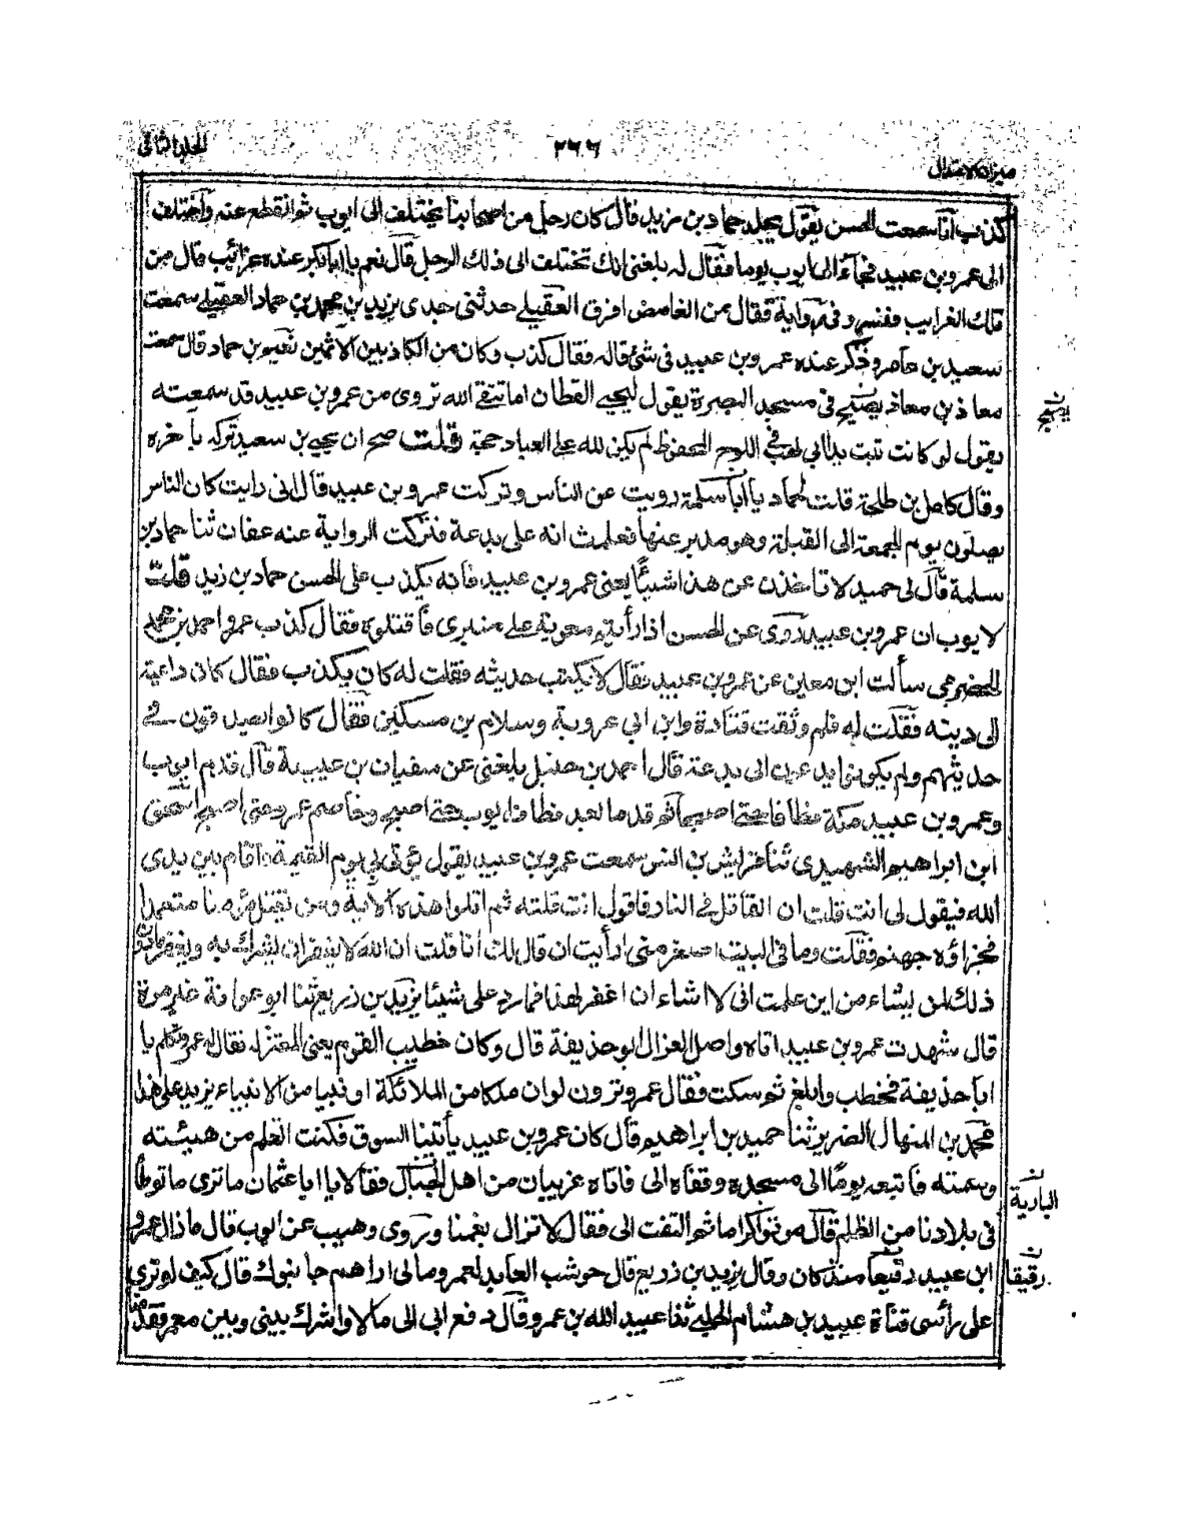 ميزان الاعتدال ٢٦٦ المجلد الثانى
كذب انا سمعت الحسن يقول يجلد حماد بن زيد قال كان رجل من اصحابنا يختلف الى ايوب ثم انقطع عنه واختلف
الى عمرو بن عبيد فجاء الى ايوب يوما فقال له بلغنى انك تختلف الى ذلك الرجل قال نعم يا ابا بكر عنده غرائب قال من
تلك الغرايب نفر وفى رواية فقال من الغامض افرق العقيلى حدثنى جدى يزيد بن محمد بن حماد العقيلى سمعت
سعيد بن عامر وذكر عنده عمرو بن عبيد فى شئ قاله فقال كذب وكان من الكاذبين الآثمين نعيم بن حماد قال سمعت
معاذ بن معاذ يصيح فى مسجد البصرة يقول ليحيى القطان اما تتقى الله تروى عن عمرو بن عبيد قد سمعته
يقول لو كانت تبت يدا ابى لهب فى اللوح المحفوظ لم يكن لله على العباد حجة قلت صح ان يحيى بن سعيد تركه باخره
وقال كامل بن طلحة قلت لحماد يا ابا سلمة رويت عن الناس وتركت عمرو بن عبيد قال انى رايت كان الناس
يصلون يوم الجمعة الى القبلة وهو مدبر عنها فعلمت انه على بدعة فتركت الرواية عنه عفان ثنا حماد بن
سلمة قال لى حميد لا تاخذن عن هذا شيئا يعنى عمرو بن عبيد فانه يكذب على الحسن حماد بن زيد قلت
لايوب ان عمرو بن عبيد روى عن الحسن اذا رأيتم معوية على منبرى فاقتلوه فقال كذب عمرو احمد بن محمد
الحضرمى سألت ابن معين عن عمرو بن عبيد فقال لا يكتب حديثه فقلت له كان يكذب فقال كان داعية
الى دينه فقلت له فلم وثقت قتادة وابن ابى عروبة وسلام بن مسكين فقال كانوا يصدقون فى
حديثهم ولم يكونوا يدعون الى بدعة قال احمد بن حنبل بلغنى عن سفيان بن عيينة قال قدم ايوب
وعمرو بن عبيد مكة فطافا حتى اصبحا ثم قدما بعد فطاف ايوب حتى اصبح وخاصم عمرو حتى اصبح اسحق
ابن ابراهيم الشهيدى ثنا قريش بن انس سمعت عمرو بن عبيد يقول يؤتى بى يوم القيمة فاقام بين يدى
الله فيقول لى انت قلت ان القاتل فى النار فاقول انت قلته ثم اتلوا هذه الاية ومن يقتل مؤمنا متعمدا
فجزاؤه جهنم فقلت وما فى البيت اصغر منى ارأيت ان قال لك انا قلت ان الله لا يغفر ان يشرك به ويغفر ما دون
ذلك لمن يشاء من اين علمت انى لا اشاء ان اغفر لهذا فما رد على شيئا يزيد بن زريع ثنا ابو عوانة غير مرة
قال شهدت عمرو بن عبيد اتاه واصل الغزال ابو حذيفة قال وكان خطيب القوم يعنى المعتزله فقال له عمرو تكلم يا
ابا حذيفة فخطب وابلغ ثم سكت فقال عمرو ترون لو ان ملكا من الملائكة او نبيا من الانبياء يزيد على هذا
محمد بن المنهال الضرير ثنا حميد بن ابراهيم قال كان عمرو بن عبيد يأتينا السوق فكنت اتعلم من هيئته
وسمته فاتبعه يوما الى مسجده وقفاه الى فاتاه غريبان من اهل الجبال فقالا يا ابا عثمان ما ترى ما توطأ
فى بلادنا من الظلم قال موتوا كراما ثم التفت الى فقال لا تزال بغمنا وروى وهيب عن ايوب قال ما زال عمرو
ابن عبيد رقيعا منذ كان وقال يزيد بن زريع قال حوشب العابد لعمرو مالى اراهم جانبوك قال كيف لو ترى
على رأسى قناة عبيد بن هشام الحلبى ثنا عبيد الله بن عمرو قال دفع ابى الى مالا واشرك بينى وبين معمر فقد
يصيح
البادية
رقيقا